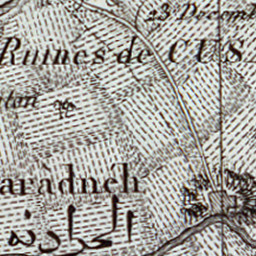 23 Décemb
Ruines de CUS
aràdneh
الحرادنه